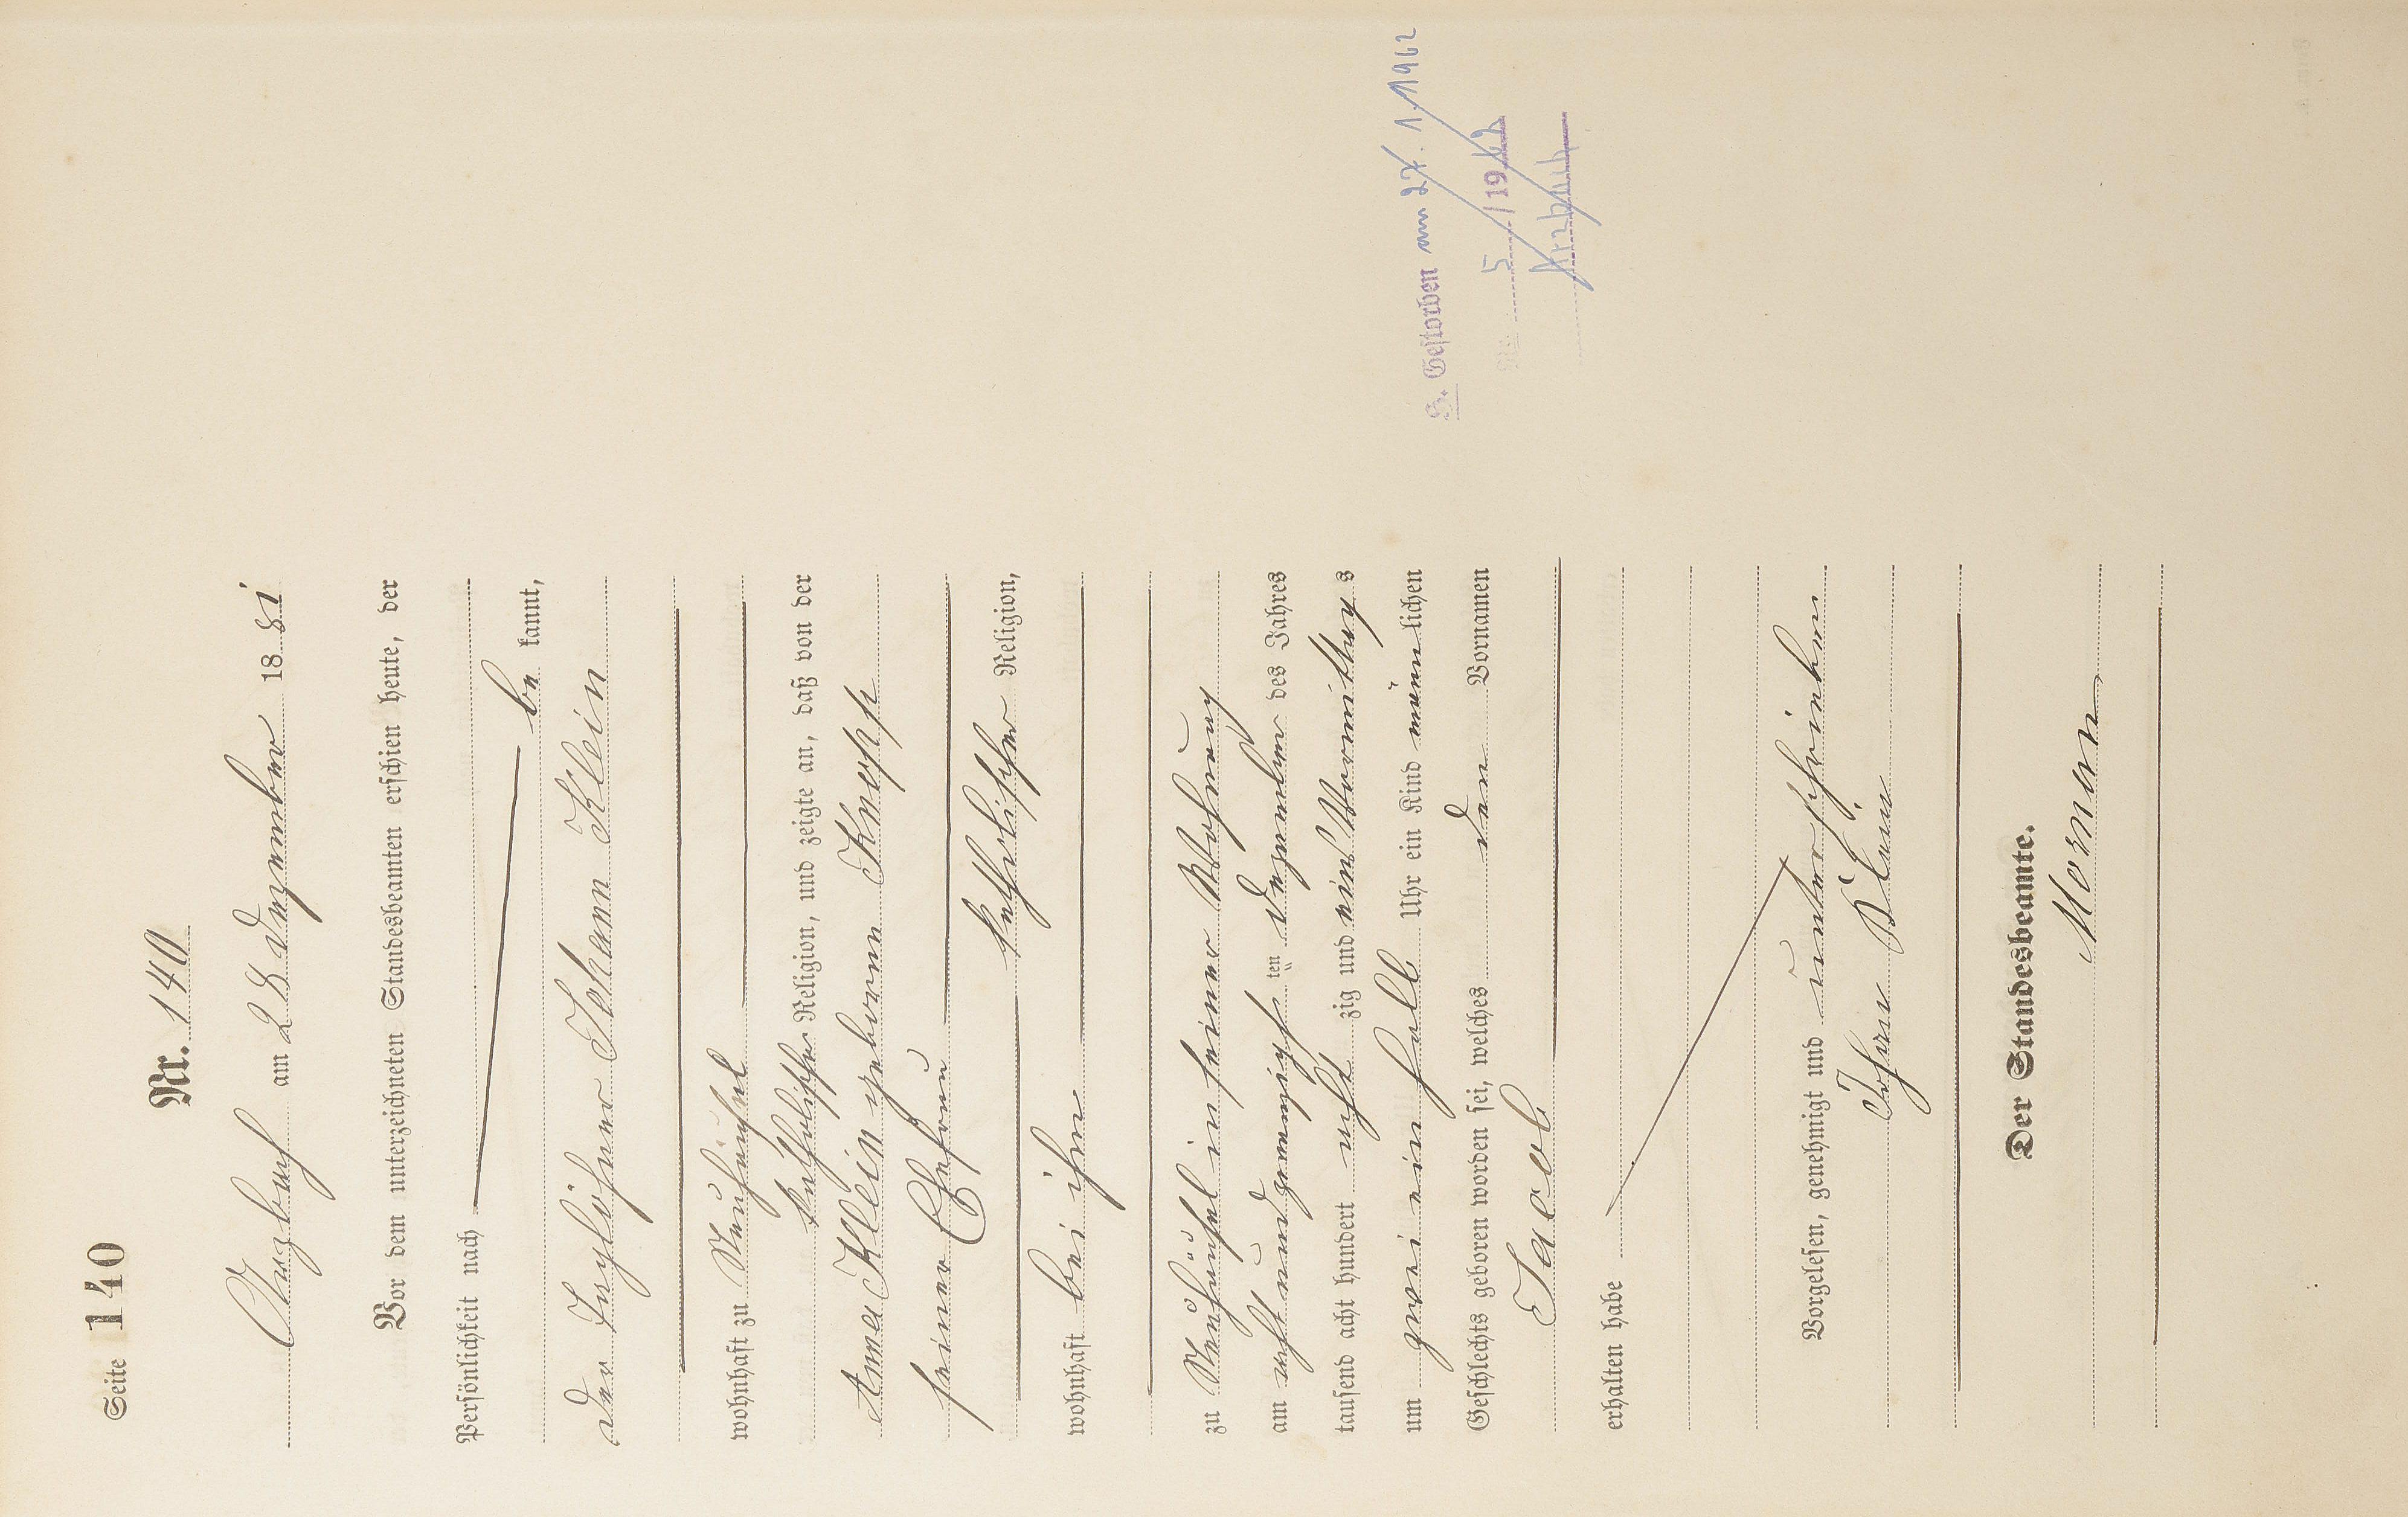 Seite 140
Nr. 140
Arzbach am 28 Dezember 1881
Vor dem unterzeichneten Standesbeamten erschien heute, der
Persönlichkeit nach
be kannt,
der Taglöhner Johann Klein
wohnhaft zu Neuhäusel
katholischer Religion, und zeigte an, daß von der
Anna Klein geborenen
seiner Ehefrau
katholischer Religion,
wohnhaft bei ihm
zu Neuhäusel in seiner Wohnung
am acht und zwanzigs ten Dezember des Jahres
tausend acht hundert acht zig und eins Vormittags
um zwei ein halb Uhr ein Kind männlichen
Geschlechts geboren worden sei, welches den Vornamen
Jacob
erhalten habe
Vorgelesen, genehmigt und unterschrieben
Johann Klein
Der Standesbeamte.
S. Gestorben am 27. 1. 1962
Nr. 5 / 1962
Arzbach